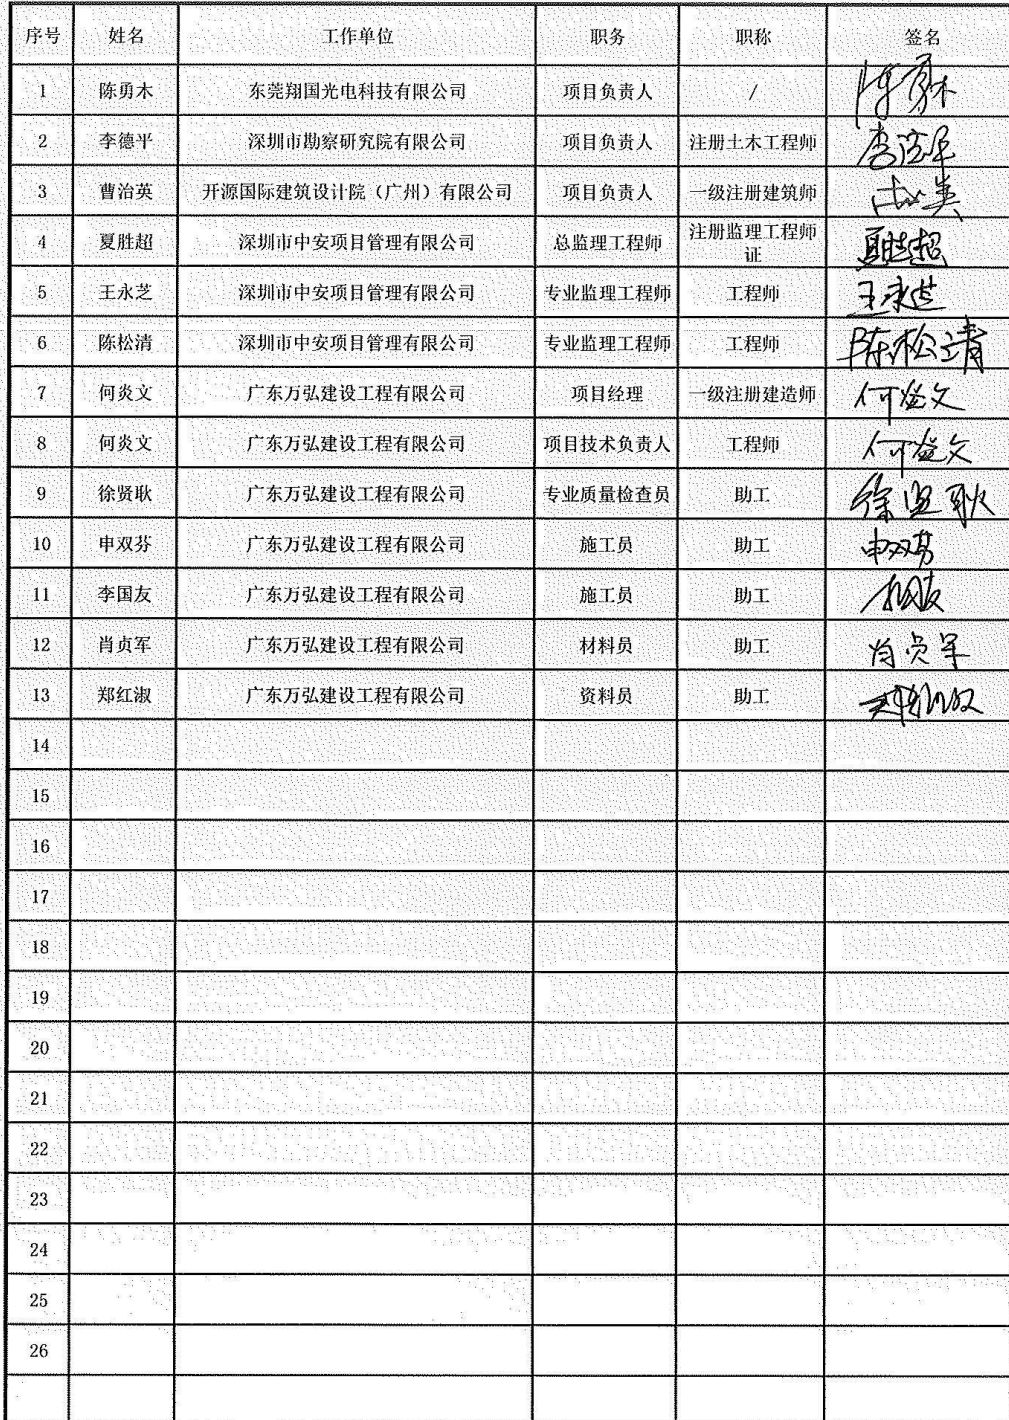 序号 姓名 工作单位 职务 职称 签名
1 陈勇木 东莞翔国光电科技有限公司 项目负责人 / 陈勇木
2 李德平 深圳市勘察研究院有限公司 项目负责人 注册土木工程师
3 曹治英 开源国际建筑设计院（广州）有限公司 项目负责人 一级注册建筑师
4 夏胜超 深圳市中安项目管理有限公司 总监理工程师 注册监理工程师证 夏胜超
5 王永芝 深圳市中安项目管理有限公司 专业监理工程师 工程师 王永芝
6 陈松清 深圳市中安项目管理有限公司 专业监理工程师 工程师 陈松清
7 何炎文 广东万弘建设工程有限公司 项目经理 一级注册建造师 何炎文
8 何炎文 广东万弘建设工程有限公司 项目技术负责人 工程师 何炎文
9 徐贤耿 广东万弘建设工程有限公司 专业质量检查员 助工 徐贤耿
10 申双芬 广东万弘建设工程有限公司 施工员 助工 申双芬
11 李国友 广东万弘建设工程有限公司 施工员 助工 李国友
12 肖贞军 广东万弘建设工程有限公司 材料员 助工 肖贞军
13 郑红淑 广东万弘建设工程有限公司 资料员 助工
14
15
16
17
18
19
20
21
22
23
24
25
26